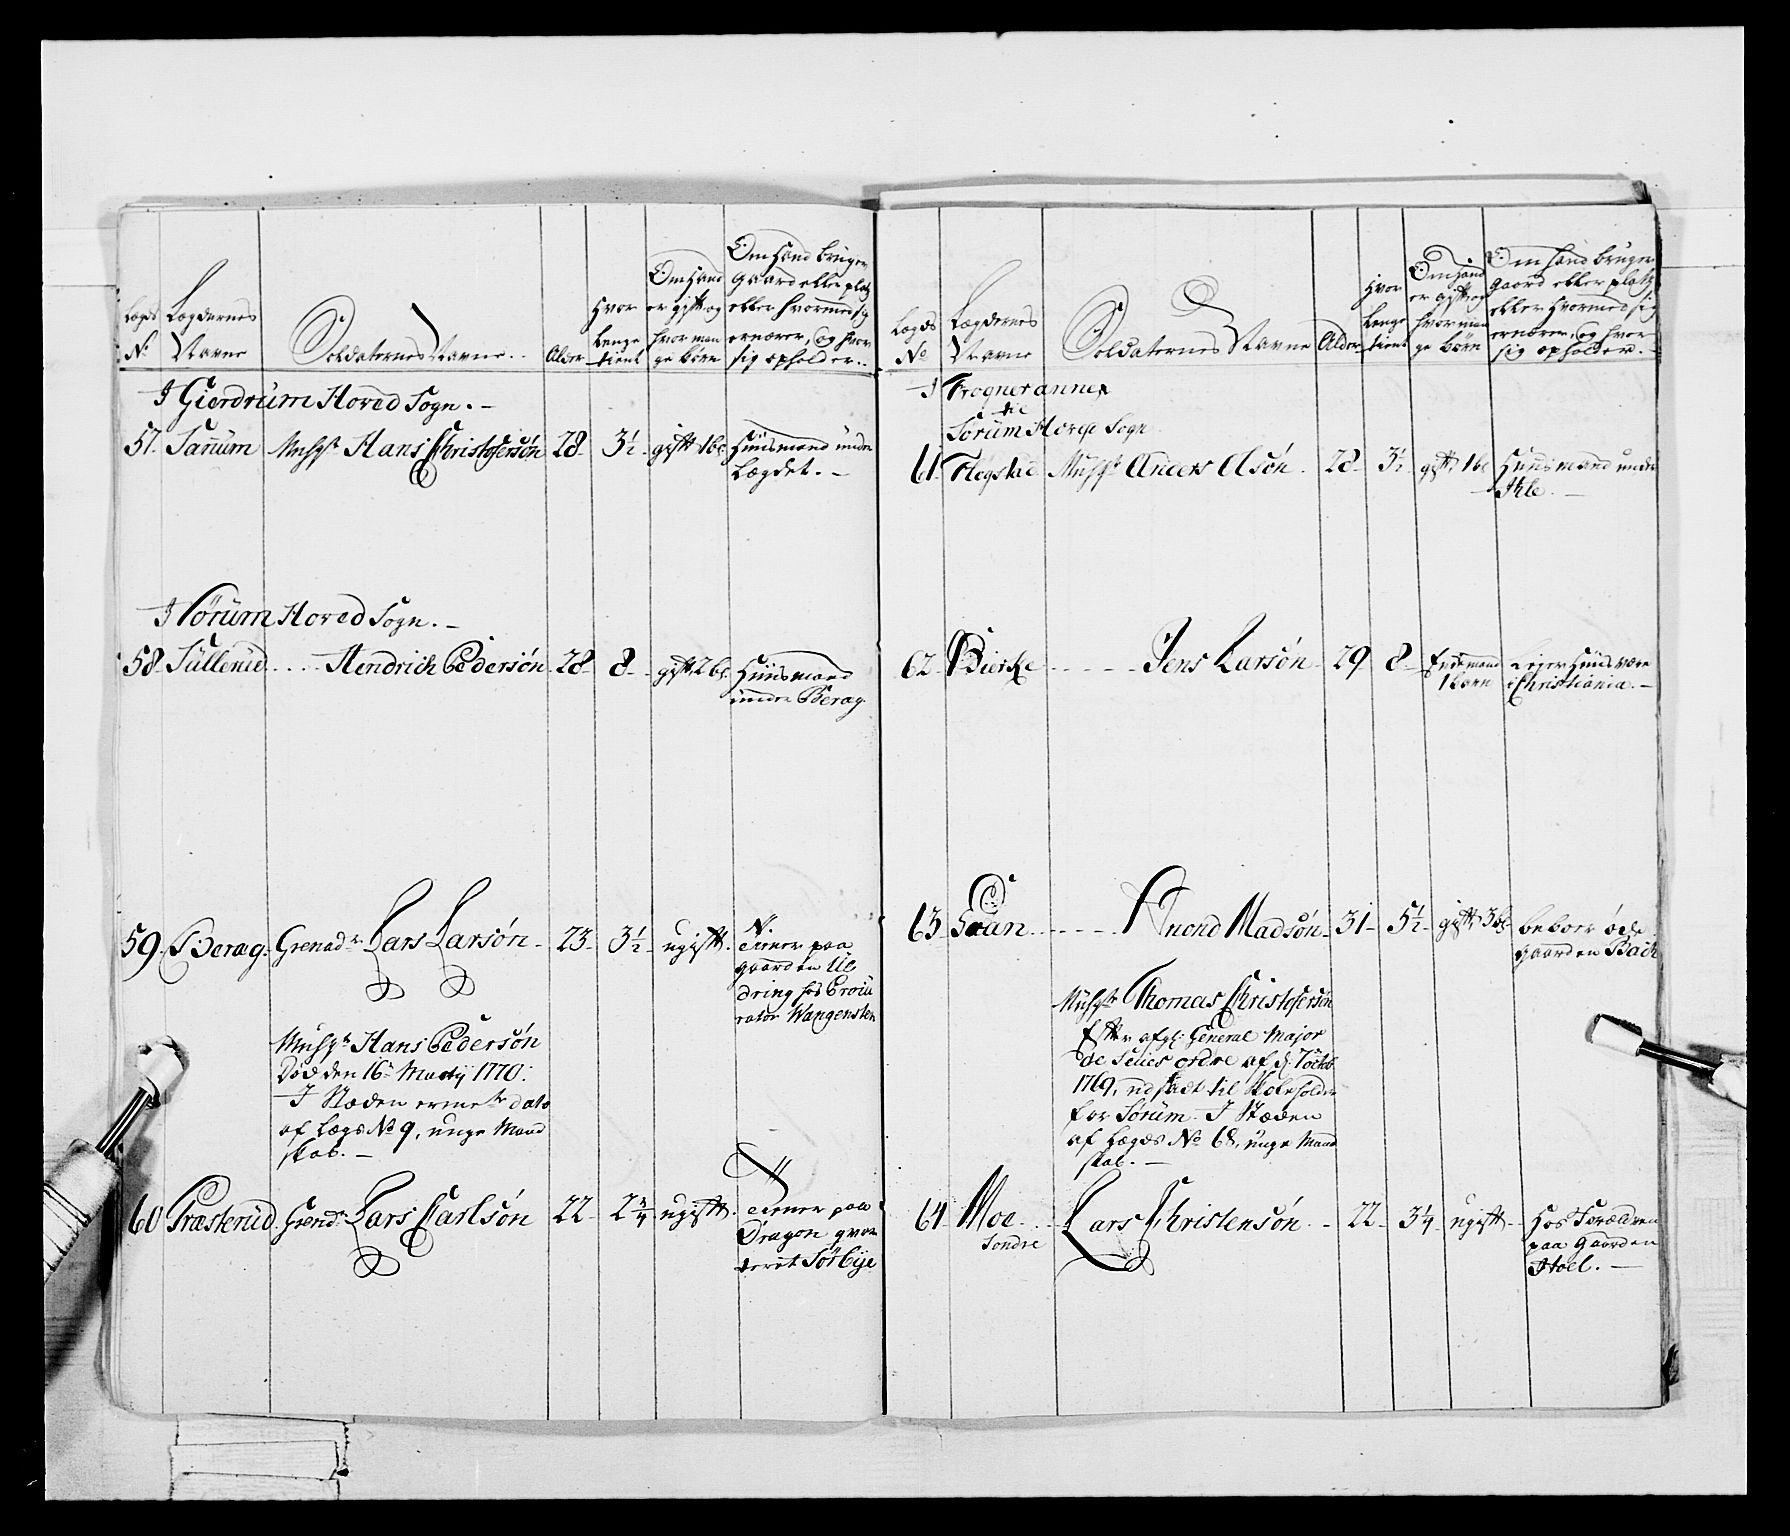 Lægds
No
Lægdernes
Navne
Soldaternes Navne.
Alder
Hvor
Lenge
tient
Om hand
er gift og
hvor man
ge børn
Om hand bruger
gaard eller platz
eller hvormed sig
ernærer, og hvor
sig opholder.
I Gierdrüm Hoved Sogn. -
57. Sanüm Musqt Hans Christophersøn 28- 3½- gift 1 b: Hüüsmand ünder
Lægdet. -
I Sørüm Hoved Sogn. -
58. Süllerüd. ... Hendrich Pedersøn 28- 8- gift 2 b: Hüüsmand
ünder Berag.
59. Berag. Grenadr Lars Larsøn - 23- 3½- ugift. N.
tiener paa
gaarden Ül
dring hos Procü
rator Wangensten
Musqt Hans Pedersøn
Død den 16de Martij 1770.
I Stæden ermelte dato
af Lægd No 9, unge Mand
skab. -
60 Præsterüd. Grendr Lars Carlsøn 22- 2¾ ugift. N
tiener paa
Dragon qvar
teret Sørbye
Lægds
No
Lægdernes
Navne
Soldaternes Navne
Alder
Hvor
Lenge
tient
Om hand
er gift og
hvor man
ge børn
Om hand bruger
Gaard eller platz
eller hvormed sig
ernærer, og hvor
sig opholder. -
I Frogner annex
til
Sørüm Hoved Sogn
61. Flogstad Musqt Anders Olsøn. 28- 3½ gift, 1 b: Hüüsmand under
Ihle. -
62. Bierke - - - - Jens Larsøn 29 8- Enkemand
1 børn Lejer Hüüsvære
i Christiania. -
63. Svan. - - - - Amond Madsøn 31- 5½- gift 3 b: beboer øde
gaarden Bach
Musqr Thomas Christophersøn
Efter afg: General Major
de Seües ordre af d: 7 octbr
1769, udsadt til Skoleholder
for Sørüm. I Stæden
af Lægds No 68, unge Mand
skab. -
64 Moe
Søndre Lars Christensøn - 22- 3¼- ugift- Hos Forældren
paa Gaarden
Hoel. -